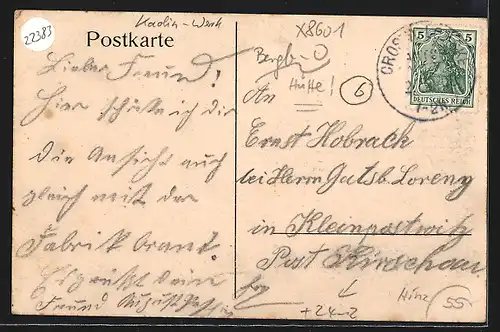 22383
Kaolin-Werk
X8601
Postkarte
Bergb.
Hütte!
6
5 5
DEUTSCHES REICH
CROS
Lieber Freund!
Hier schicke ich dir
die Ansicht auch
gleich mit der
Fabrik brant.
Es grüßt dein
Freund August
An
Ernst Hobrach
bei Herrn Gutsb. Lorenz
in Kleinpostwitz
Post Kirschau
+24-2
Hinz
55